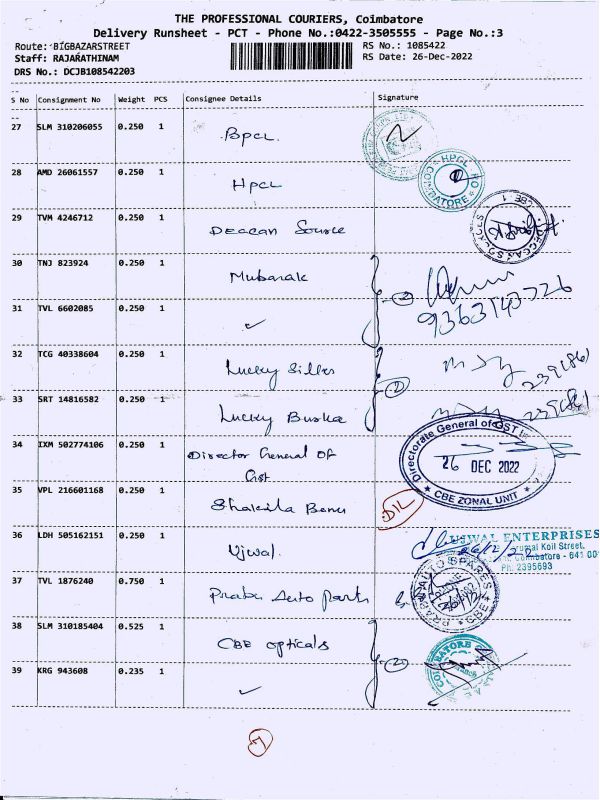 THE PROFESSIONAL COURIERS, Coimbatore
Delivery Runsheet - PCT - Phone No.:0422-3505555 - Page No.:3
Route: BIGBAZARSTREET
RS No.: 1085422
Staff: RAJARATHINAM
RS Date: 26-Dec-2022
DRS No.: DCJB108542203
S No Consignment No Weight PCS Consignee Details Signature
27 SLM 310206055 0.250 1 BPCL
28 AMD 26061557 0.250 1 HPCL
HPCL
COIMBATORE
29 TVM 4246712 0.250 1 Deccan Source
30 TNJ 823924 0.250 1 Mubarak 2
31 TVL 6602085 0.250 1 ✓
9363140726
32 TCG 40338604 0.250 1 Lucky Silks 2
33 SRT 14816582 0.250 1 Lucky Burka
34 IXM 502774106 0.250 1 Director General Of
Gst
Directorate General of GST
26 DEC 2022
CBE ZONAL UNIT
35 VPL 216601168 0.250 1 Shakila Banu D/L
36 LDH 505162151 0.250 1 Ujwal.
UJWAL ENTERPRISES
26/12/22
Koil Street,
Coimbatore - 641 001
Ph: 2395693
37 TVL 1876240 0.750 1 Praba Auto Parts
PRABA AUTO SPARES
CBE
38 SLM 310185404 0.525 1 CBE Opticals 2
39 KRG 943608 0.235 1 ✓